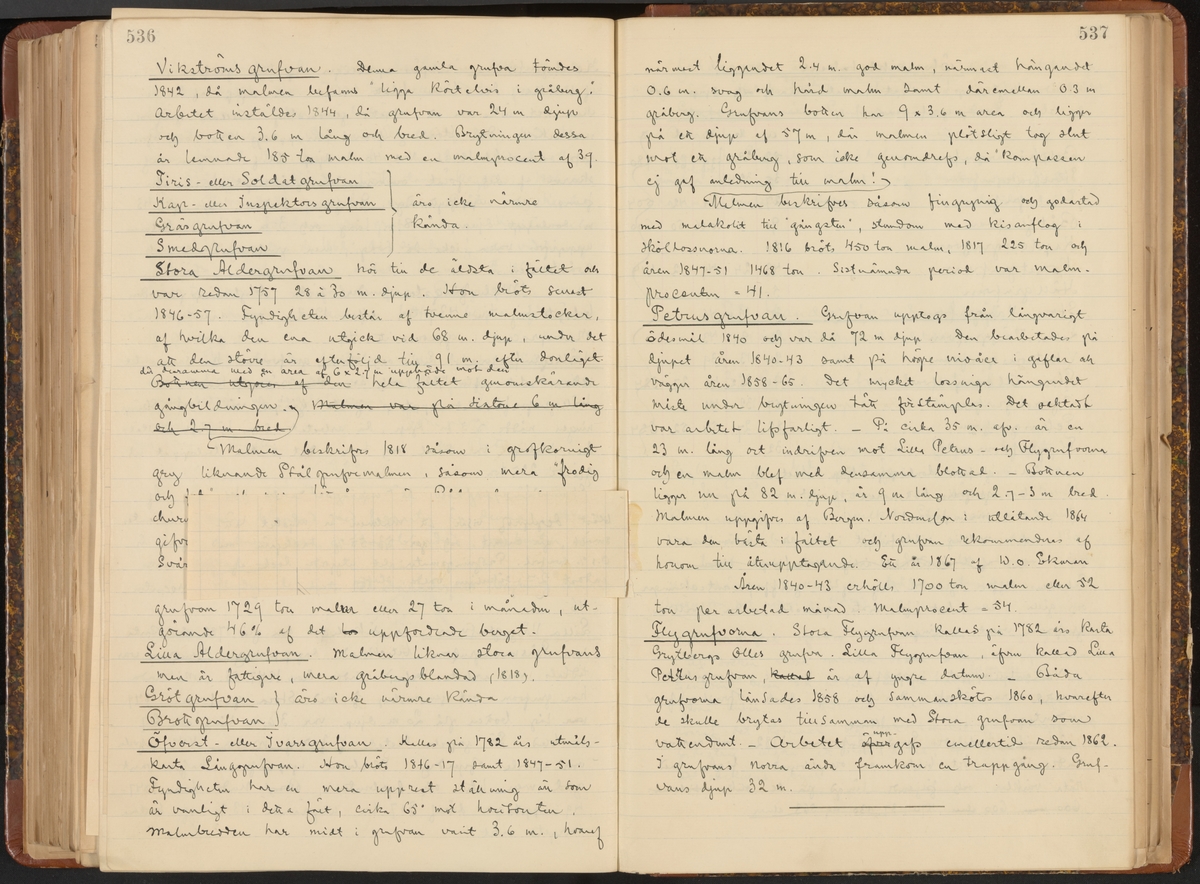 536
Vikströms grufvan. Denna gamla grufva tömdes
1842, då malmen befanns "ligga körtelvis i gråberg".
Arbetet inställdes 1844, då grufvan var 24 m djup
och botten 3.6 m lång och bred. Brytningen dessa
år lemnade 185 ton malm med en malmprocent af 39.
Tiris- eller Soldatgrufvan
Kap- eller Inspektorsgrufvan } äro icke närmre
Gräsgrufvan kända.
Smedgrufvan
Stora Aldergrufvan hör till de äldsta i fältet och
var redan 1757 28 à 30 m. djup. Hon bröts senast
1846-57. Fyndigheten består af tvenne malmstockar,
af hvilka den ena utgick vid 68 m. djup, under det
att den större är efterföljd till 91 m. efter donläget
då densamma med en area af 6 x 2.7 m upphörde mot den
Bottnen utgöres af den hela fältet genomskärande
gångbildningen. Malmen var på sistone 6 m lång
och 2.7 m bred.
Malmen beskrifves 1818 såsom i grofkornigt
grej liknande Stålgrufvemalmen, såsom mera frodig
och
grufvan 1729 ton malm eller 27 ton i månaden, ut-
görande 46% af det uppfordrade berget.
Lilla Aldergrufvan. Malmen liknar stora grufvans
men är fattigare, mera gråbergsblandad (1818).
Grötgrufvan } äro icke närmre kända
Brottgrufvan
Öfverst- eller Ivarsgrufvan. Kallas på 1782 års utmåls-
karta Långgrufvan. Hon bröts 1846-17 samt 1847-51.
Fyndigheten har en mera upprest ställning än som
är vanligt i detta fält, cirka 65° mot horisonten.
Malmbredden har midt i grufvan varit 3.6 m., hvaraf
537
närmast liggandet 2.4 m. god malm, närmast hängandet
0.6 m. svag och hård malm samt däremellan 0.3 m
gråberg. Grufvans botten har 9 x 3.6 m area och ligger
på ett djup af 57 m, där malmen plötsligt tog slut
mot ett gråberg, som icke genomdrefs, då "kompassen
ej gaf anledning till malm!"
Malmen beskrifves såsom fingrynig och godartad
med malakolit till "gångsten", stundom med kisanflog i
sköllossnorna. 1816 bröts 450 ton malm, 1817 225 ton och
åren 1847-51 1468 ton. Sistnämnda period var malm-
procenten = 41.
Petrusgrufvan. Grufvan upptogs från långvarigt
ödesmål 1840 och var då 72 m djup. Den bearbetades på
djupet åren 1840-43 samt på högre nivåer i gaflar och
väggar åren 1858-65. Det mycket lossniga hängandet
måste under brytningen tätt förstämplas. Det oaktadt
var arbetet lifsfarligt. — På cirka 35 m. afv. är en
23 m. lång ort indrifven mot Lilla Petrus- och Flygrufvorna
och en malm blef med densamma blottad. — Bottnen
ligger nu på 82 m. djup, är 9 m lång och 2.7-3 m bred.
Malmen uppgifves af Bergm. Nordmson i utlåtande 1864
vara den bästa i fältet och grufvan rekommenderas af
honom till återupptagande. Ett år 1867 af W.O. Ekman
Åren 1840-43 erhölls 1700 ton malm eller 52
ton per arbetad månad. Malmprocent = 54.
Flygrufvorna. Stora Flygrufvan kallas på 1782 års karta
Grytbergs Olles grufva. Lilla Flygrufvan, äfven kallad Lilla
Petrusgrufvan, kallad är af yngre datum. — Båda
grufvorna länsades 1858 och sammansköts 1860, hvarefter
de skulle brytas tillsamman med Stora grufvan som
vattendunt. — Arbetet öfvergafs upp- emellertid redan 1862.
I grufvans norra ända framkom en trappgång. Gruf-
vans djup 32 m.